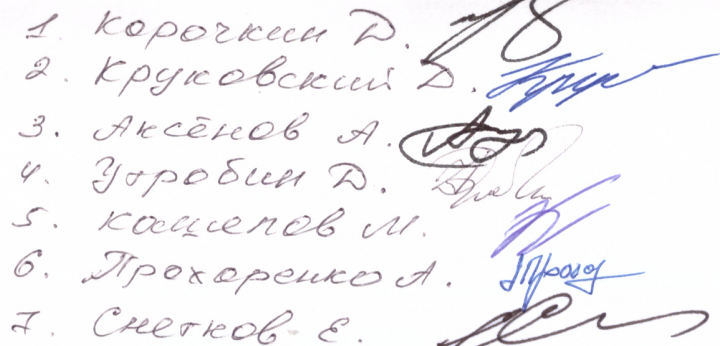 1. Корочкин Д.
2. Круковский Д.
3. Аксёнов А.
4. Утробин Д.
5. Кащепов М.
6. Прохоренко А.
7. Снетков Е.